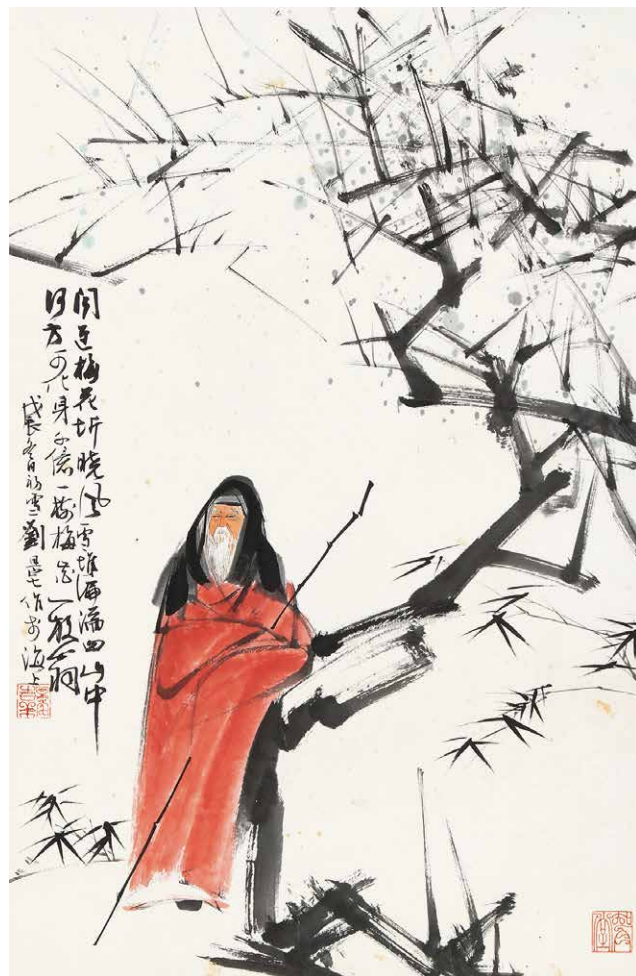 聞道梅花坼曉風雪堆遍滿四山中
何方可化身千億一樹梅花一放翁
戊辰冬日初雪劉旦宅作於海上